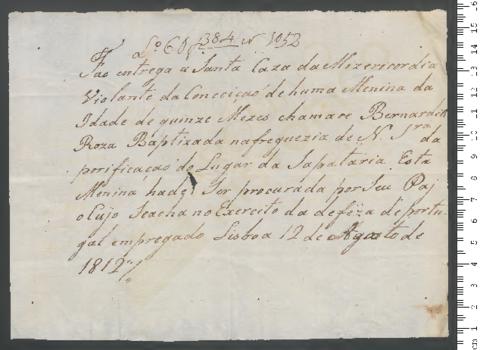 Lo 68 f 384 N 1052
Faço entrega a Santa Caza da Mizericordia
Violante da Conceiçaõ de huma Menina da
Idade de quinze Mezes chamace Bernardet
Roza Baptizada nafreguezia de N. Sra da
porificaçaõ do Lugar da Sapataria Esta
Menina hade Ser procurada por Seu Paj
o Cujo Seacha no Exercito da defeza de portu
gal empregado Lisboa 12 de Agosto de
1812